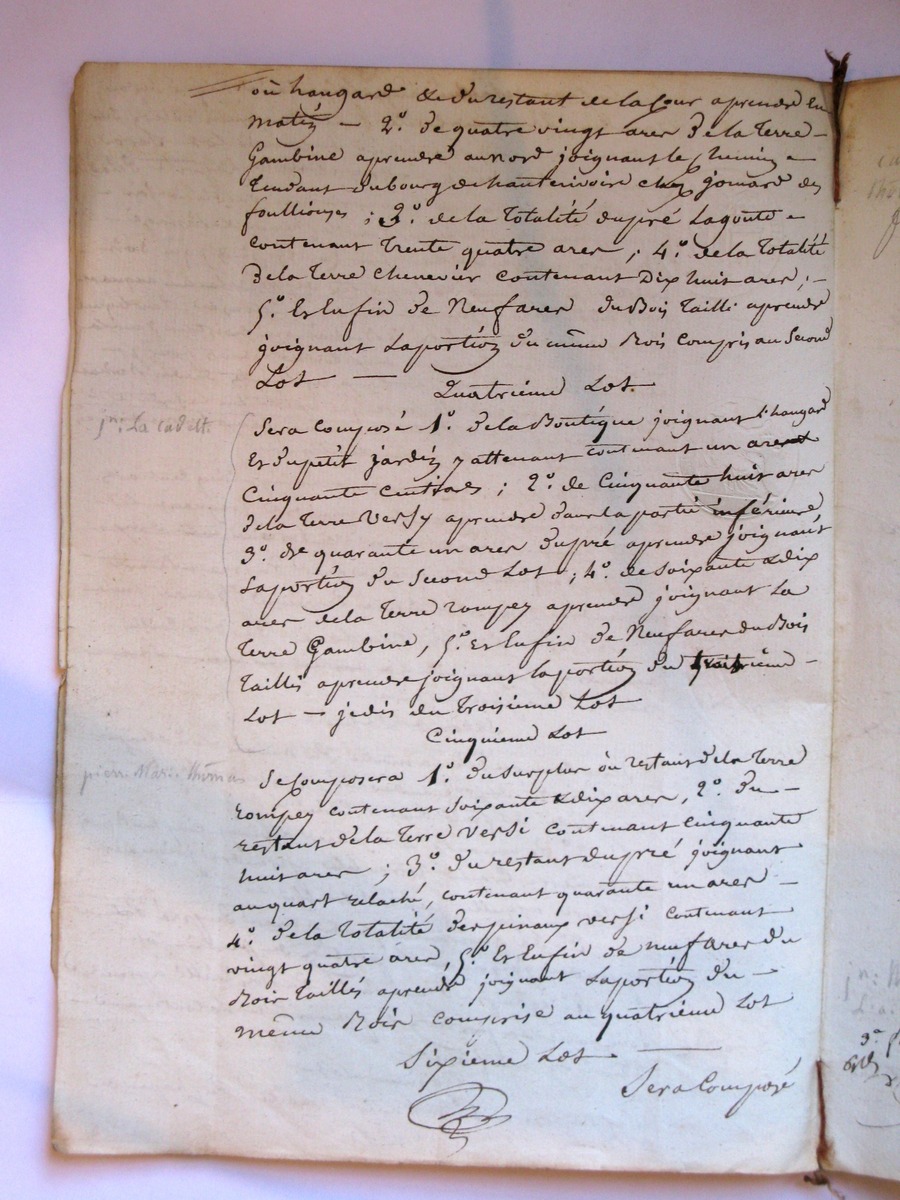 où hangard & du restant de la Cour aprendre en
matin — 2°. de quatre vingt ares de la Terre –
Gambine aprendre au nord joignant le chemin –
Tendant du bourg de hauterivoire chez jomard des
foullouses ; 3°. de la Totalité du pré Lagoute –
contenant Trente quatre ares ; 4°. de la Totalité
de la Terre chenevier contenant Dix huit ares ; –
5°. Et Enfin de Neuf ares du Bois Tailli aprendre
joignant la portion du même Bois Compris au Second
Lot —
Quatrième Lot.
jn: La cadett.
Sera Composé 1°. de la Boutique joignant l'hangard
Et du petit jardin y attenant contenant un are et
Cinquante Centiares ; 2°. de Cinquante huit ares
de la Terre Versy aprendre dans la partie inférieure
3°. de quarante un ares du pré aprendre joignant
la portion du Second Lot ; 4°. de soixante & dix
ares de la Terre rompey aprendre joignant La
Terre Gambine, 5°. Et Enfin de Neuf ares du Bois
Taillis aprendre joignant la portion du –
Lot — je dis du Troisieme Lot
Cinquieme Lot
pierre Marie thomas
Se Composera 1°. du surplus où restant de la Terre
rompey contenant Soixante & dix ares, 2°. du –
restant de la Terre versi contenant cinquante
huit ares ; 3°. du restant du pré joignant
au quart relaché, contenant quarante un ares –
4°. de la Totalité des pinaux versi contenant
vingt quatre ares, 5°. Et Enfin de neuf ares du
Bois Taillis aprendre joignant la portion du –
même Bois comprise au quatrieme Lot
Sixieme Lot. —
Sera Composé